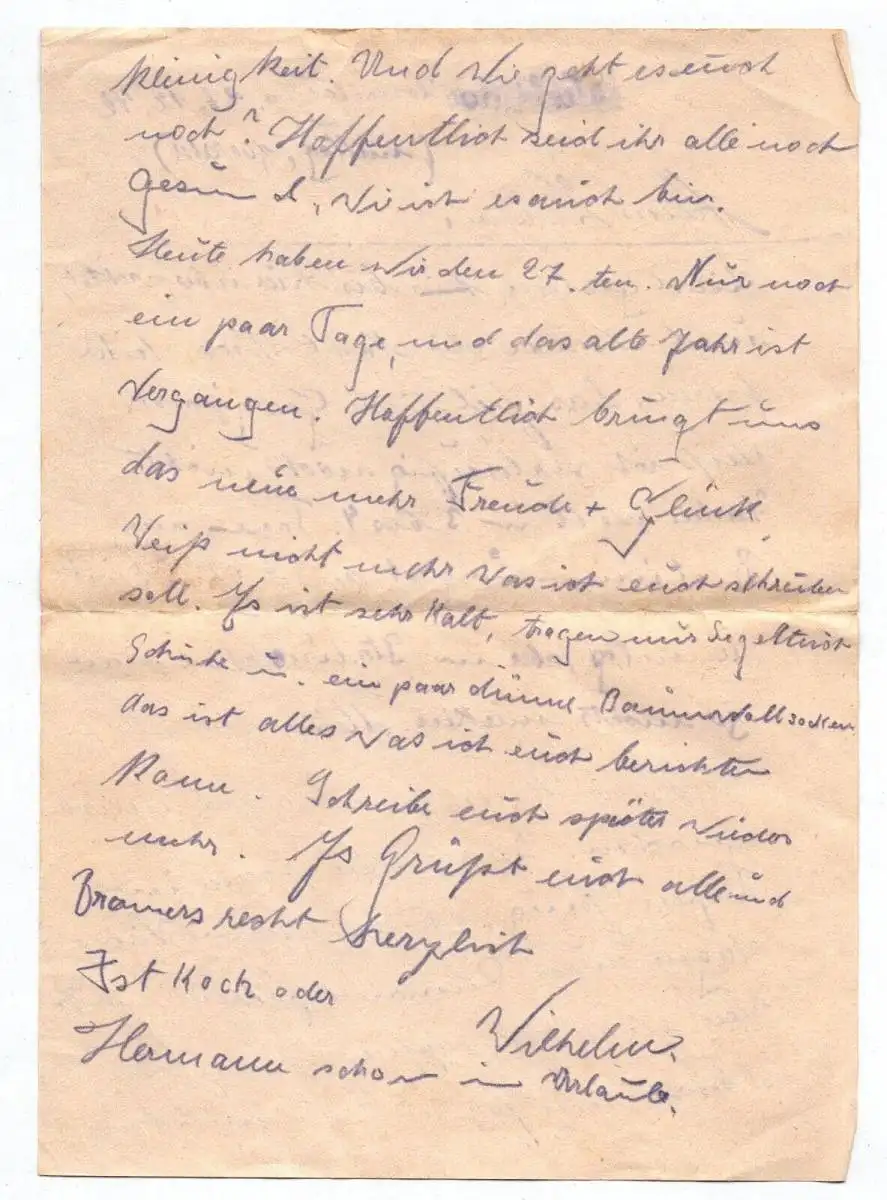 kleinigkeit. Und wie geht es euch
noch? Hoffentlich seid ihr alle noch
gesund, wie ich es auch bin.
Heute haben wir den 27.ten. Nur noch
ein paar Tage, und das alte Jahr ist
vergangen. Hoffentlich bringt uns
das neue mehr Freude + Glück.
Weiß nicht mehr was ich euch schreiben
soll. Es ist sehr kalt, tragen nur Segeltuch
Schuhe u. ein paar dünne Baumwollsocken
das ist alles was ich euch berichten
kann. Schreibe euch später wieder
mehr. Es Grüßt euch alle und
Bramers recht herzlich
Wilhelm.
Ist Koch oder
Hermann schon in Urlaub.